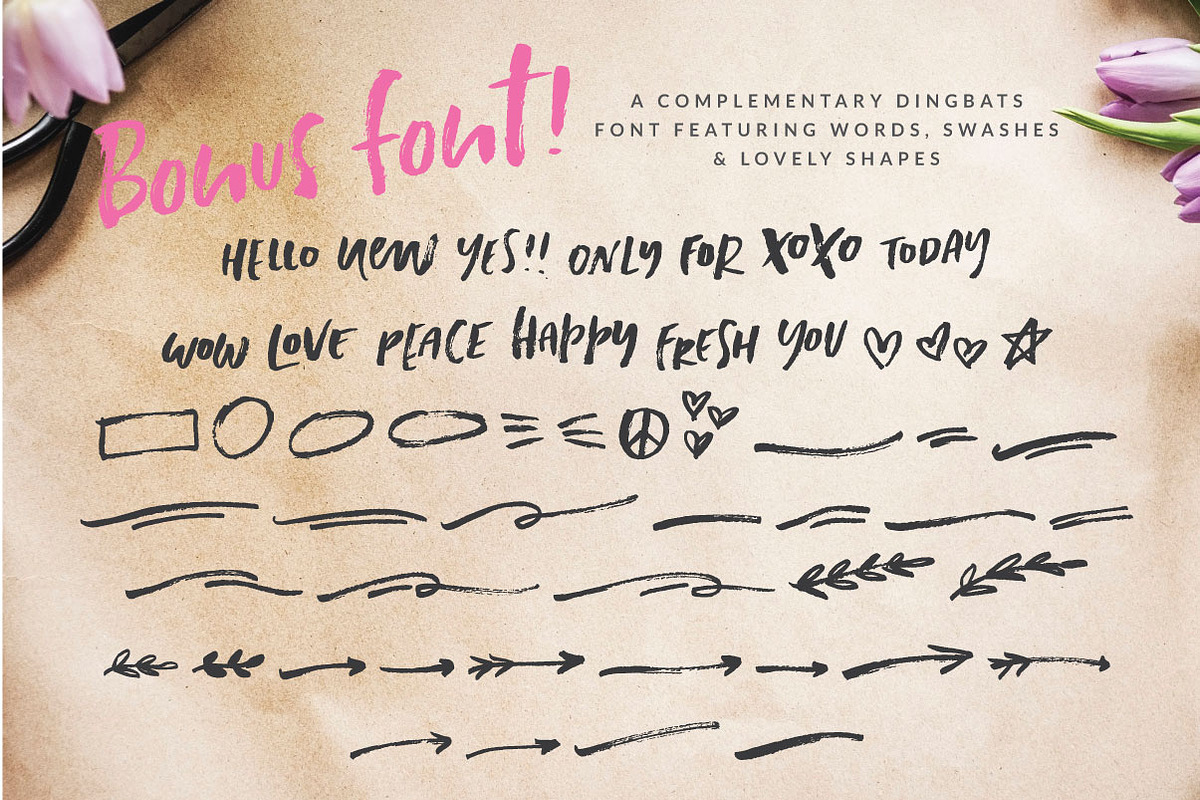 Bonus font!
A COMPLEMENTARY DINGBATS
FONT FEATURING WORDS, SWASHES
& LOVELY SHAPES
HELLO new YES!! ONLY FOR XOXO TODAY
WOW LOVE PEACE HAPPY FRESH YOU